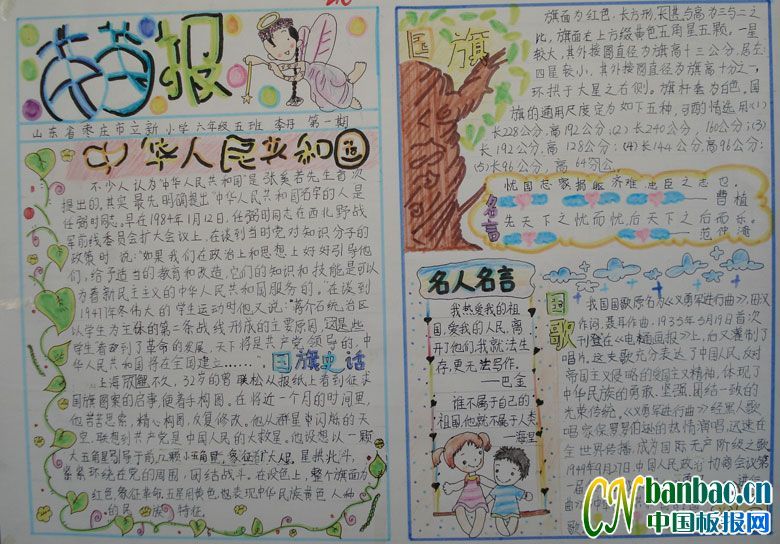 报
山东省枣庄市立新小学六年级五班 李丹 第一期
中华人民共和国
不少人认为"中华人民共和国"是张奚若先生首次
提出的,其实最先明确提出"中华人民共和国"名字的人是
任弼时同志。早在1984年1月12日,任弼时同志在西北野战
军前线委员会扩大会议上,在谈到当时党对知识分子的
政策时说:"如果我们在政治上和思想上好好引导他
们,给予适当的教育和改造,它们的知识和技能是可以
为着新民主主义的中华人民共和国服务的。在谈到
1947年冬伟大的学生运动时他又说:"蒋介石统治区
以学生为主体的第二条战线形成的主要原因,这是些
学生看到了革命的发展,天下将是共产党领导的,中
华人民共和国将在全国建立……
国旗史话
上海放假不久,32岁的曾联松从报纸上看到征求
国旗图案的启事,便着手构图。在将近一个月的时间里,
他苦苦思索,精心构图,反复修改。他从群星中闪烁的天
空,联想到共产党是中国人民的大救星。他设想以一颗
大五角星引导于前,
星拱北斗,
紧紧环绕在党的周围,团结战斗。在设色上,整个旗面为
红色,象征革命,五星用黄色,也表现中华民族黄色人种
的民族特征。
国旗
旗面为红色,长方形,其长与高为三与二之
比,旗面左上方缀黄色五角星五颗。一星
较大,其外接圆直径为旗高十三公分,居左;
四星较小,其外接圆直径为旗高十分之一,
环拱于大星之右侧。旗杆套为白色。国
旗的通用尺度定为如下五种,可酌情选用:(1)
长228公分,高192公分;(2)长240公分,160公分;(3)长
192公分,高128公分;(4)长144公分,高96公分;
(5)长96公分,高64公分。
名言
忧国忘家,捐躯济难,忠臣之志也。
——曹植
先天下之忧而忧后天下之后而乐。
——范仲淹
名人名言
我热爱我的祖
国,爱我的人民,离
开了他们,我就法生
存,更无法写作。
——巴金
谁不属于自己的
祖国,他就不属于人类
国歌
我国国歌原名为《义勇军进行曲》,田汉
作词,聂耳作曲,1935年5月19日首次
刊登在《电通画报》上,后又灌制了
唱片,这支歌充分表达了中国人民反对
帝国主义侵略的爱国主义精神,体现了
中华民族的勇敢、坚强、团结一致的
光荣传统。《义勇军进行曲》经黑人歌
唱家保罗·罗伯逊的热情演唱,迅速在
全世界传播,成为国际无产阶级之歌
1949年9月27日,中国人民政治协商会议第
一届
CNbanbao.cn
中国板报网